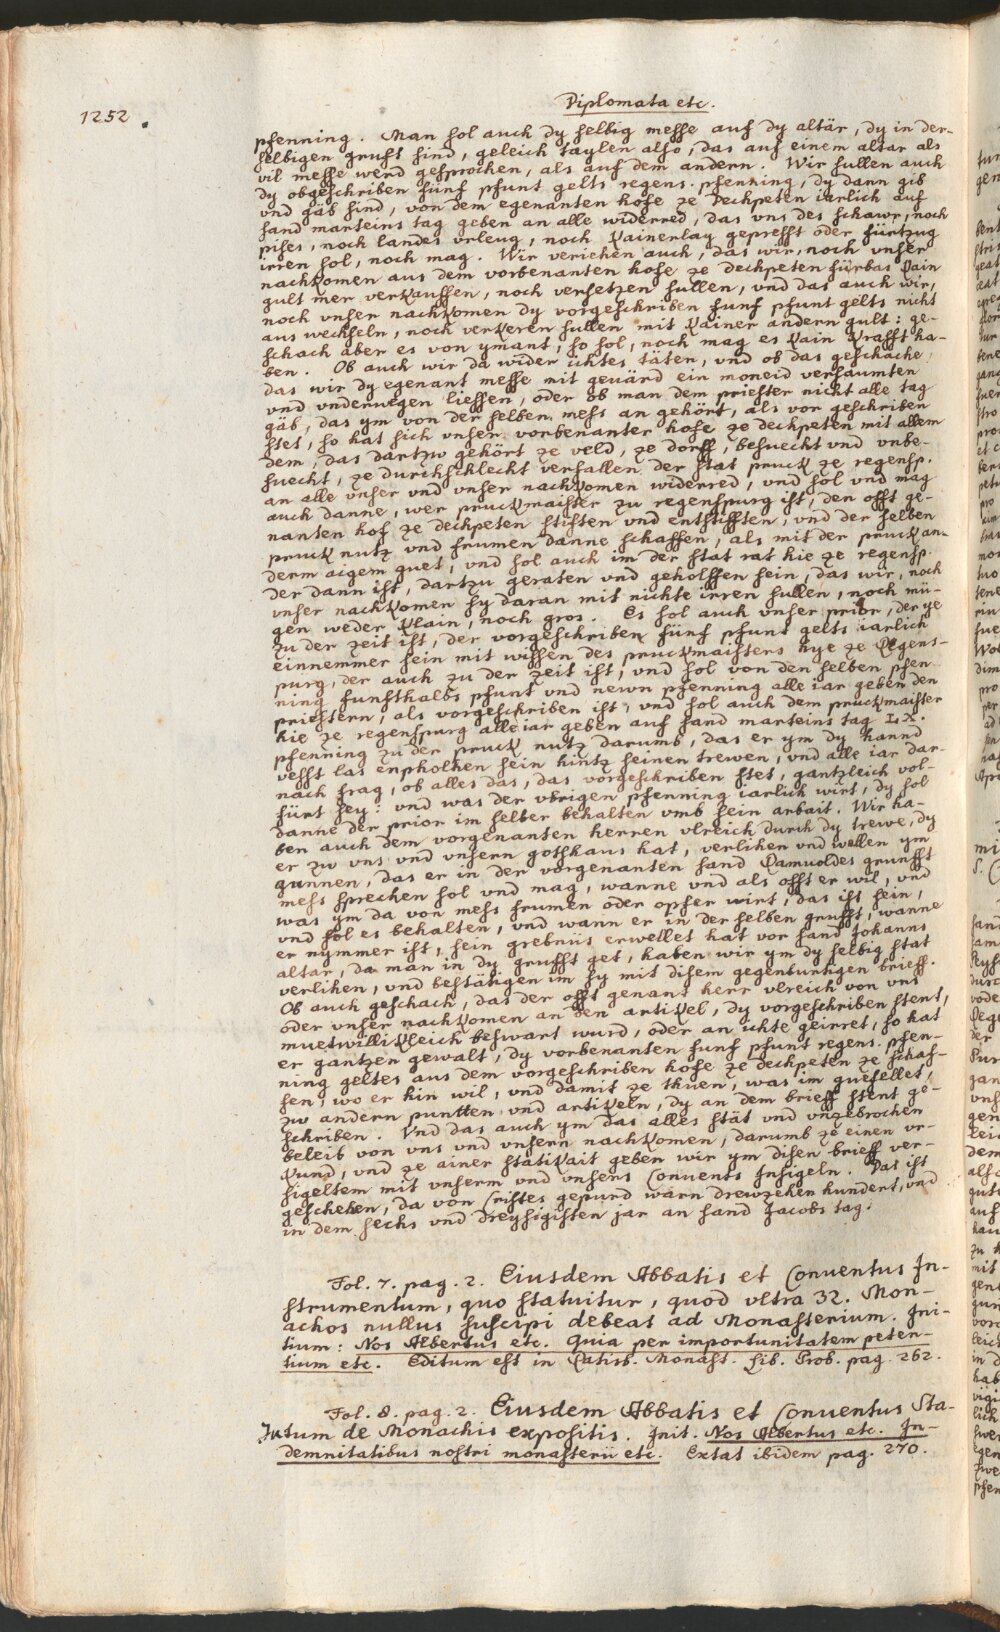 1252
Diplomata etc.
pfenning. Man sol auch dy selbig messe auf dy altär, dy in der-
selbigen gruft sind, geleich taylen also, das auf einem altar als
vil messe werd gesprochen, als auf dem andern. Wir sullen auch
dy obgeschriben fünf pfunt gelts regens. pfenning, dy dann gib
vnd gäb sind, von dem egenanten hofe ze Deckpeten iärlich auf
sand marteins tag geben an alle widerred, das vns des schawr, noch
pises, noch landes vrleug, noch kainerlay geprefft oder fürtzug
irren sol, noch mag. Wir veriehen auch, das wir, noch vnser
nachkomen aus dem vorbenanten hofe ze deckpeten fürbas kain
gult mer verkauffen, noch versetzen sullen, vnd das auch wir,
noch vnser nachkomen dy vorgeschriben funf pfunt gelts nicht
aus wechseln, noch verkeren sullen mit kainer andern gult: ge-
schäch aber es von ymant, so sol, noch mag es kain krafft ha-
ben. Ob auch wir da wider ichtes täten, vnd ob das geschäche,
das wir dy egenant messe mit geuärd ein moneid versaumten
vnd vnderwegen liessen, oder ob man dem priester nicht alle tag
gäb, das ym von der selben mess an gehört, als vor geschriben
stet, so hat sich vnser vorbenanter hofe ze deckpeten mit allem
dem, das dartzw gehört ze veld, ze dorff, besuecht vnd vnbe-
suecht, ze durchschlecht verfallen der stat pruck ze regensp.
an alle vnser vnd vnser nachkomen widerred, vnd sol vnd mag
auch danne, wer pruckmaister zu regenspurg ist, den offt ge-
nanten hof ze deckpeten stiften vnd entstifften, vnd der selben
pruck nutz vnd frumen danne schaffen, als mit der pruck an-
derm aigem guet, vnd sol auch im der stat rat hie ze regensp.
der dann ist, dartzu geraten vnd geholffen sein, das wir, noch
vnser nachkomen sy daran mit nichte irren sullen, noch mü-
gen weder klain, noch gros. Es sol auch vnser prior, der ye
zu der zeit ist, der vorgeschriben fünf pfunt gelts iarlich
einnemmer sein mit wissen des pruckmaisters hye ze Regens-
purg, der auch zu der zeit ist, vnd sol von den selben pfen-
ning funfthalbs pfunt vnd newn pfenning alle iar geben den
priestern, als vorgeschriben ist, vnd sol auch dem pruckmaister
hie ze regenspurg alle iar geben auf sand marteins tag LX.
pfenning zu der pruck nutz darumb, das er ym dy hannd
vefft las enpholhen sein hintz seinen trewen, vnd alle iar dar-
nach frag, ob alles das, das vorgeschriben stet, gantzleich vol-
fürt sey: vnd was der vbrigen pfenning iarlich wirt, dy sol
danne der prior im selber behalten vmb sein arbait. Wir ha-
ben auch dem vorgenanten herren vlreich durch dy trewe, dy
er zw vns vnd vnsern gotshaus hat, verlihen vnd wellen ym
gunnen, das er in der vorgenanten sand Ramuoldes grunfft
mess sprechen sol vnd mag, wanne vnd als offt er wil, vnd
was ym da von mess frumen oder opfer wirt, das ist sein,
vnd sol es behalten, vnd wann er in der selben grufft, wanne
er nymmer ist, sein grebnüs erwellet hat vor sand Johanns
altar, da man in dy grufft get, haben wir ym dy selbig stat
verlihen, vnd bestätigen im sy mit disem gegenburtigen brieff.
Ob auch geschach, das der offt genant herr vlreich von vns
oder vnser nachkomen an den artikel, dy vorgeschriben stent,
muetwillikleich beswart wurd, oder an ichte geirret, so hat
er gantzen gewalt, dy vorbenanten funf pfunt regens. pfen-
ning geltes aus dem vorgeschriben hofe ze deckpeten ze schaf-
fen, wo er hin wil, vnd damit ze thuen, was im guefellet,
zw andern puntten vnd artikeln, dy an dem brieff stent ge-
schriben. Vnd das auch ym das alles stät vnd vnzebrochen
beleib von vns vnd vnsern nachkomen, darumb ze einen vr-
kund, vnd ze ainer stätikait geben wir ym disen brieff ver-
sigeltem mit vnserm vnd vnsers Conuents Insigeln. Das ist
geschehen, da von Cristes gepurd warn drewzehen hundert, vnd
in dem sechs vnd dreyssigisten jar an sand Jacobs tag.
Fol. 7. pag. 2. Eiusdem Abbatis et Conuentus In-
strumentum, quo statuitur, quod vltra 32. Mon-
achos nullus suscipi debeat ad Monasterium. Ini-
tium: Nos Albertus etc. Quia per importunitatem peten-
tium etc. Editum est in Ratisb. Monast. Lib. Prob. pag. 262.
Fol. 8. pag. 2. Eiusdem Abbatis et Conuentus Sta-
tutum de Monachis expositis. Init. Nos Albertus etc. In-
demnitatibus nostri monasterii etc. Extat ibidem pag. 270.